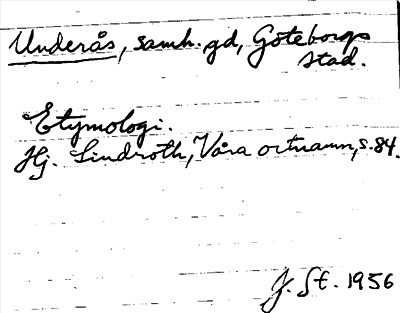 Underås, samh. gd, Göteborgs
stad.
Etymologi.
Hj. Lindroth, Våra ortnamn, s. 84.
J. St. 1956